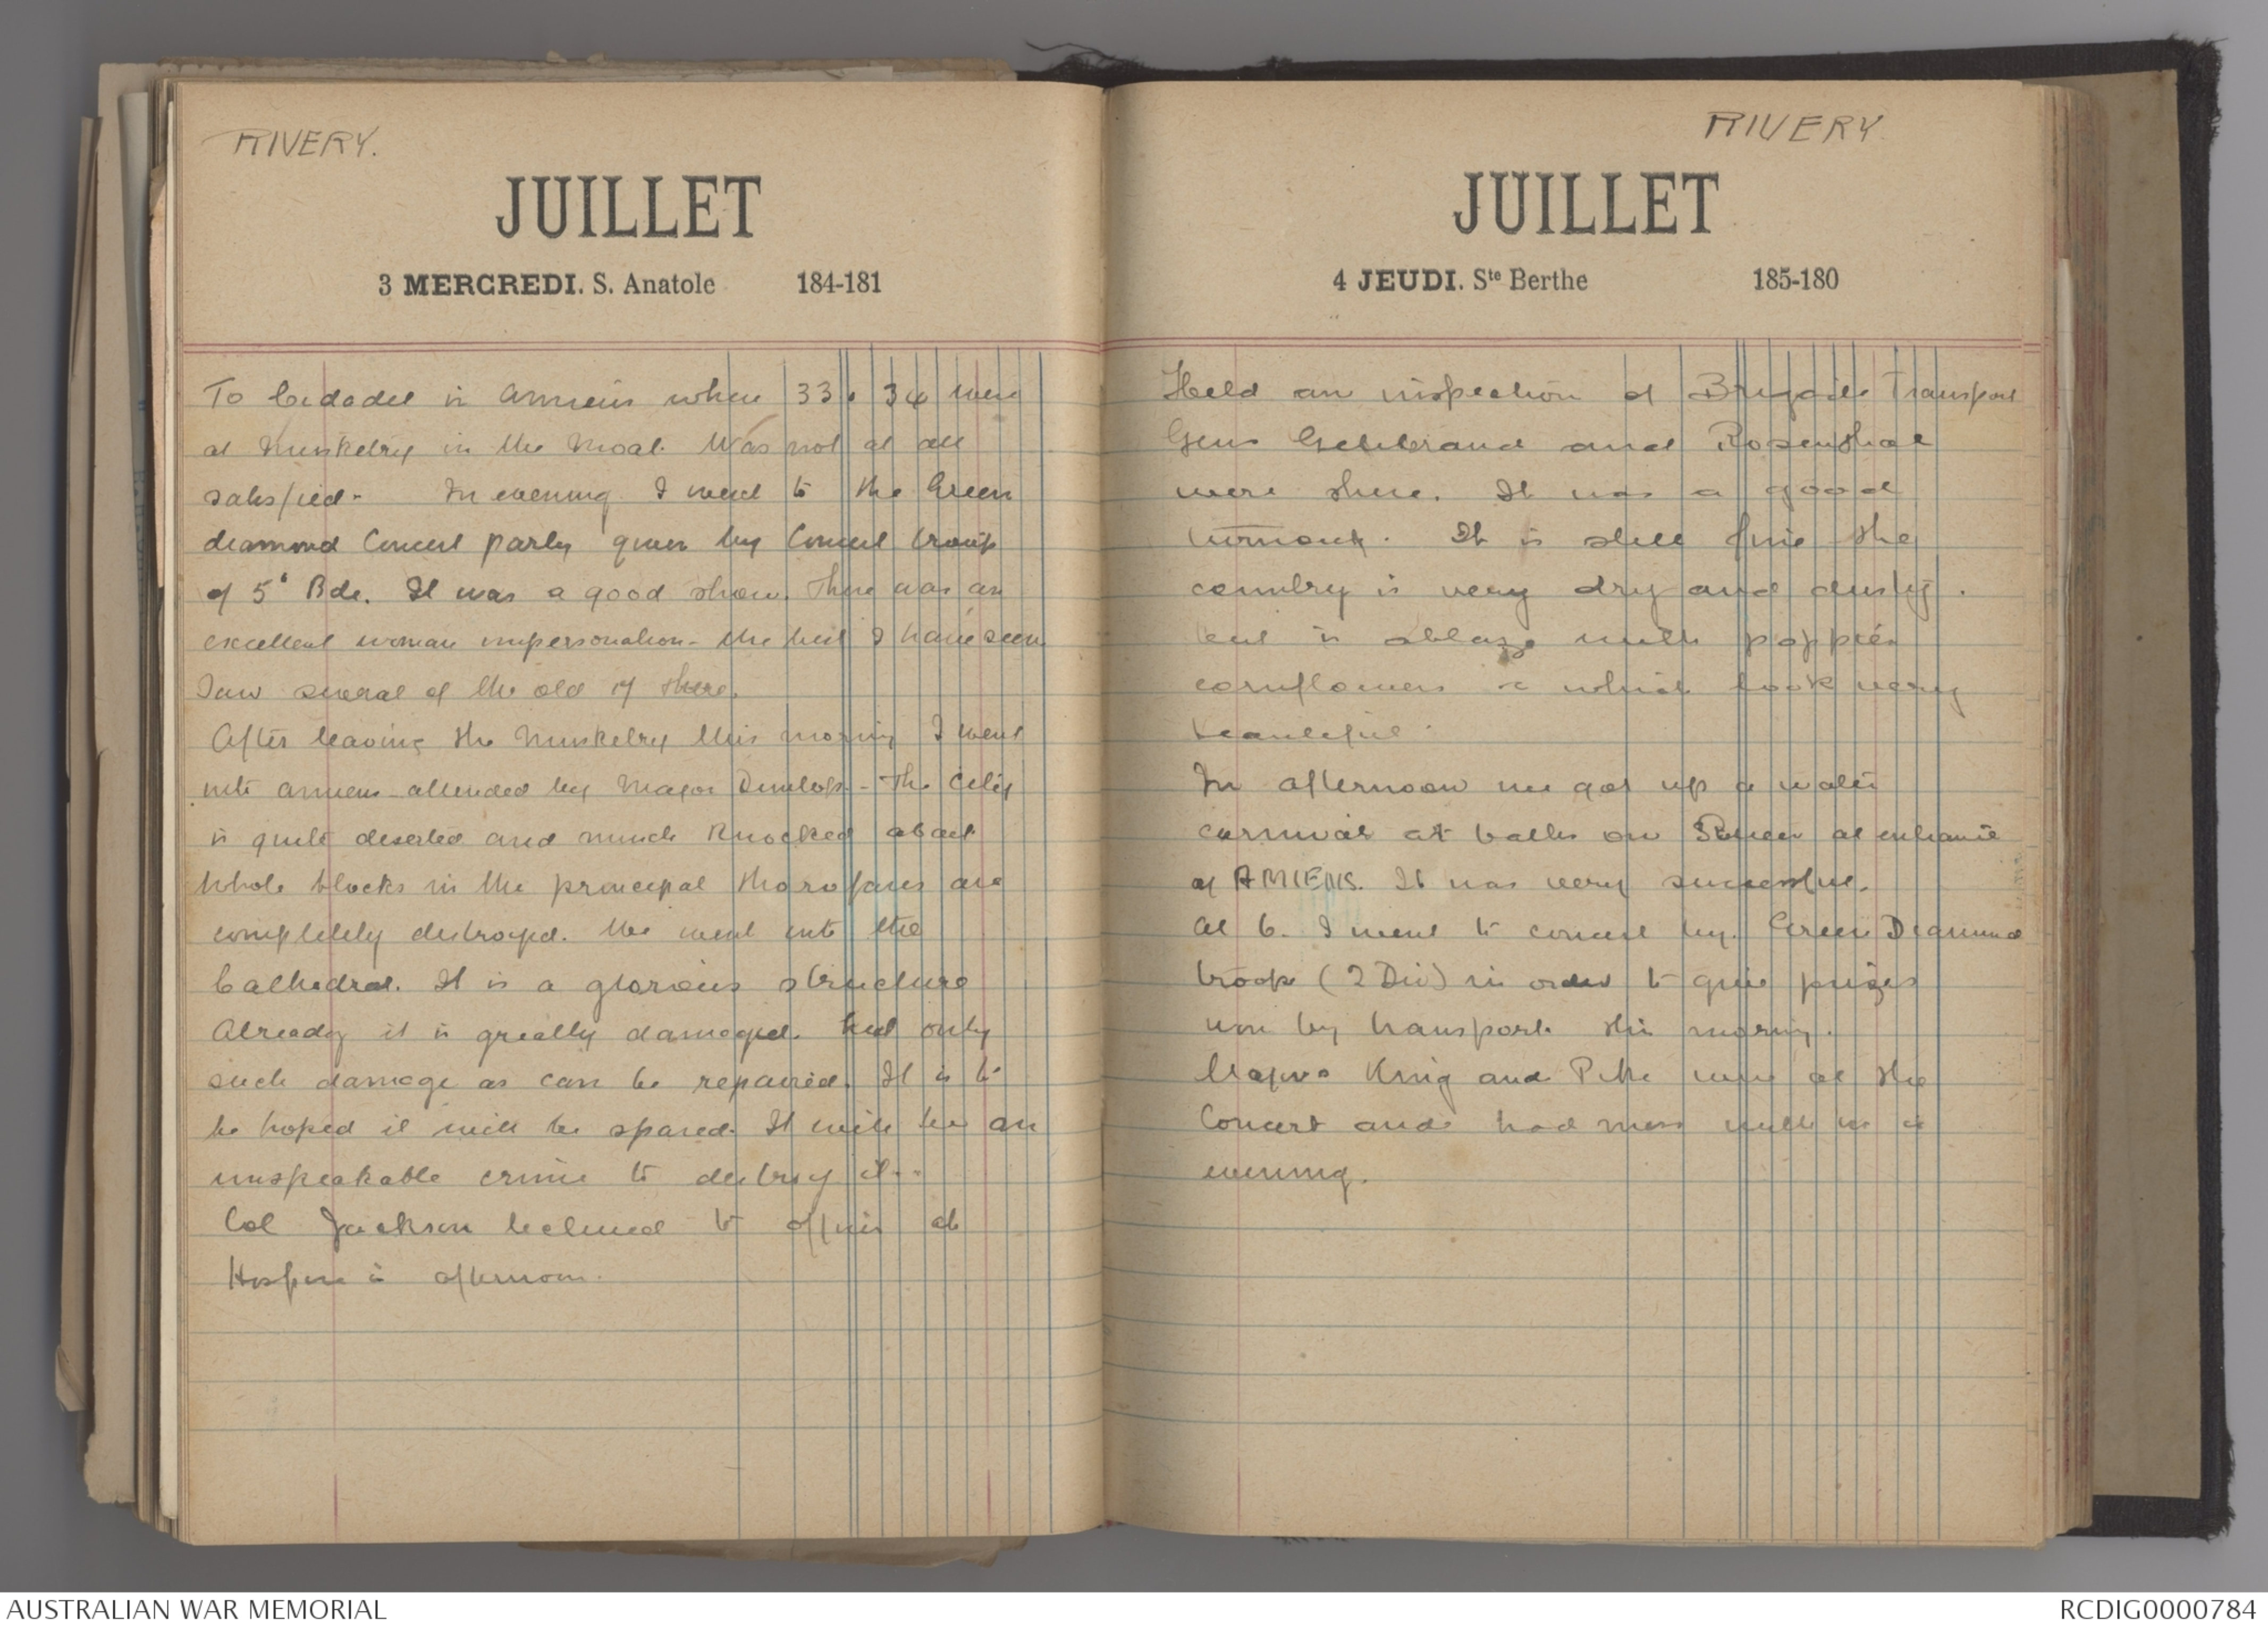 RIVERY.
JUILLET
3 MERCREDI. S. Anatole 184-181
To Citadel in Amiens where 33 & 34 were
at Musketry in the Moat. Was not at all
satisfied - In evening I went to the Green
diamond Concert party given by Concert troup
of 5' Bde. It was a good show. There was an
excellent woman impersonation - the best I have seen
Saw several of the old 17 there.
After leaving the Musketry this morning I went
into Amiens attended by Major Dunlop - The City
is quite deserted and much knocked about
Whole blocks in the principal thorofares are
completely destroyed. We went into the
Cathedral. It is a glorious structure
Already it is greatly damaged. but only
such damage as can be repaired. It is to
be hoped it will be spared. It will be an
unspeakable crime to destroy it..
Col Jackson to at
in afternoon.
RIVERY.
JUILLET
4 JEUDI. Ste Berthe 185-180
Held an inspection of Brigade Transport
Gens Gellibrand and Rosenthal
were there. It was a good
turnout. It is still fine the
country is very dry and dusty.
but is ablaze with poppies
cornflowers & which look very
beautiful.
In afternoon we got up a water
carnival at baths on at entrance
of AMIENS. It was very successful.
At 6. I went to concert by Green Diamond
troop (2 Div) in order to give prizes
won by transport this morning.
Majors King and were at the
Concert and had mess with us in
evening.
AUSTRALIAN WAR MEMORIAL
RCDIG0000784